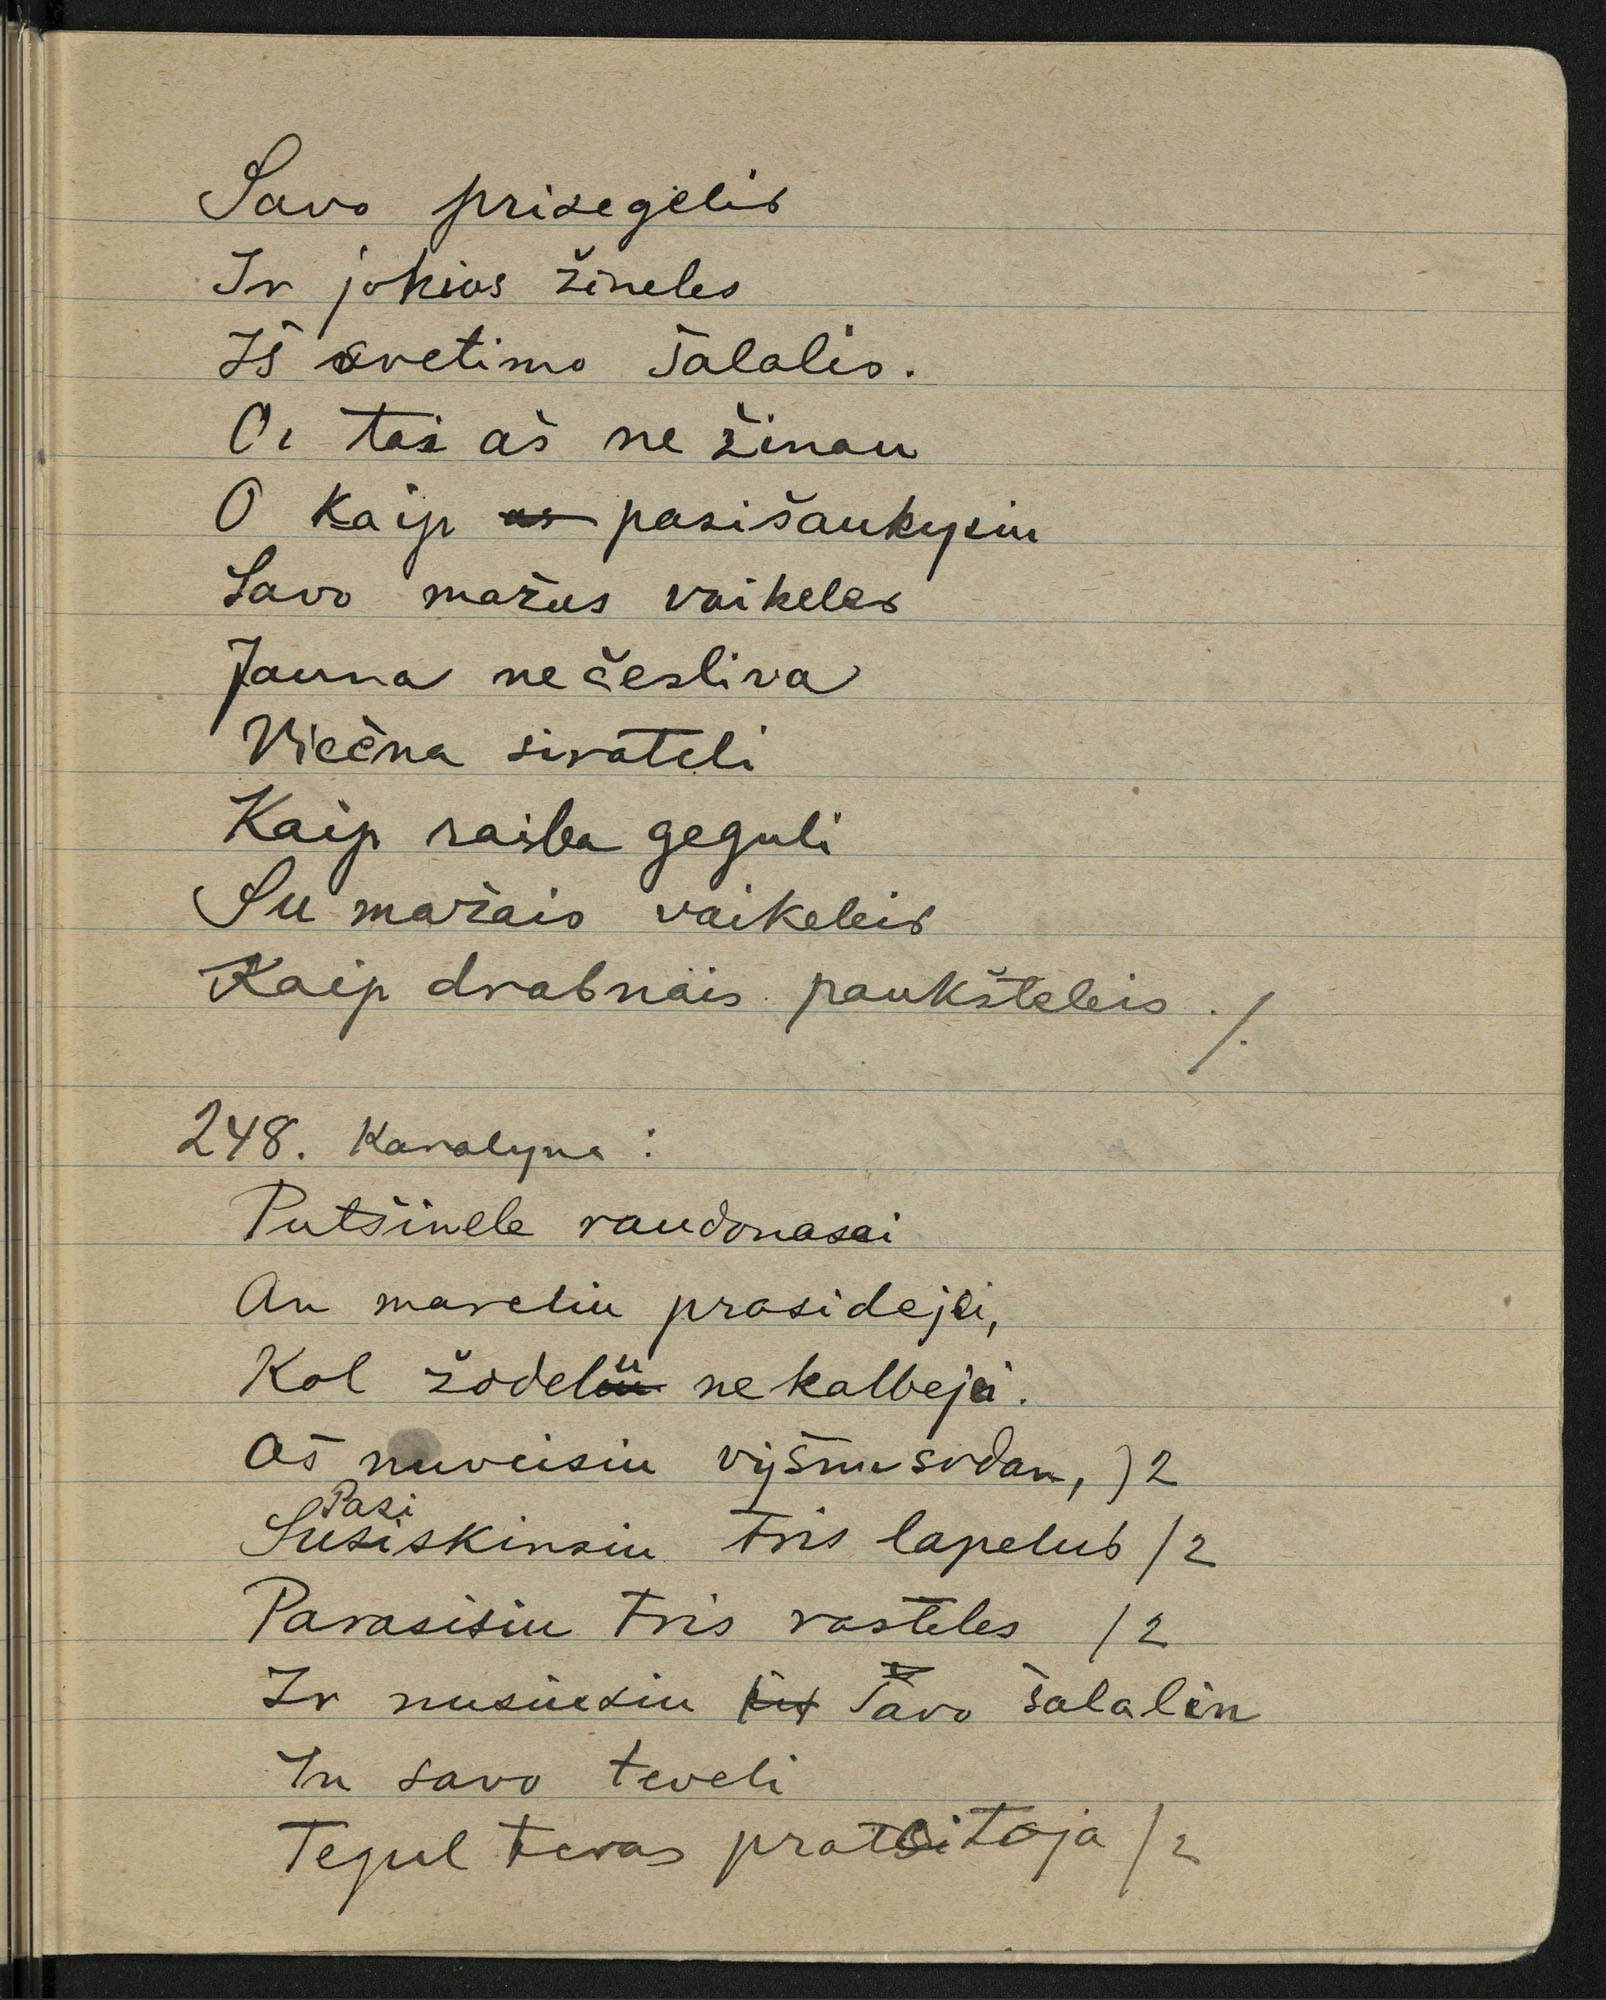 Savo prisegelis
Ir jokios žineles
Iš svetimo šalalis.
Oi tai aš ne žinau
O Kaip as pasišaukysiu
Savo mažus vaikeles
Jauna nečesliva
Viečna sirateli
Kaip raiba geguli
Su mažais vaikeleis
Kaip drabnais paukšteleis ./.
248. Karalyne :
Putšinele raudonasai
An mareliu prasideji,
Kol žodeliu nekalbeji.
Aš nuveisiu vyšniu sodan, )2
Pasi
Susiskinsiu tris lapelus /2
Parasisiu tris rasteles /2
Ir nusiusiu Tavo šalalin
In savo teveli
Tegul tevas pratsitoja /2